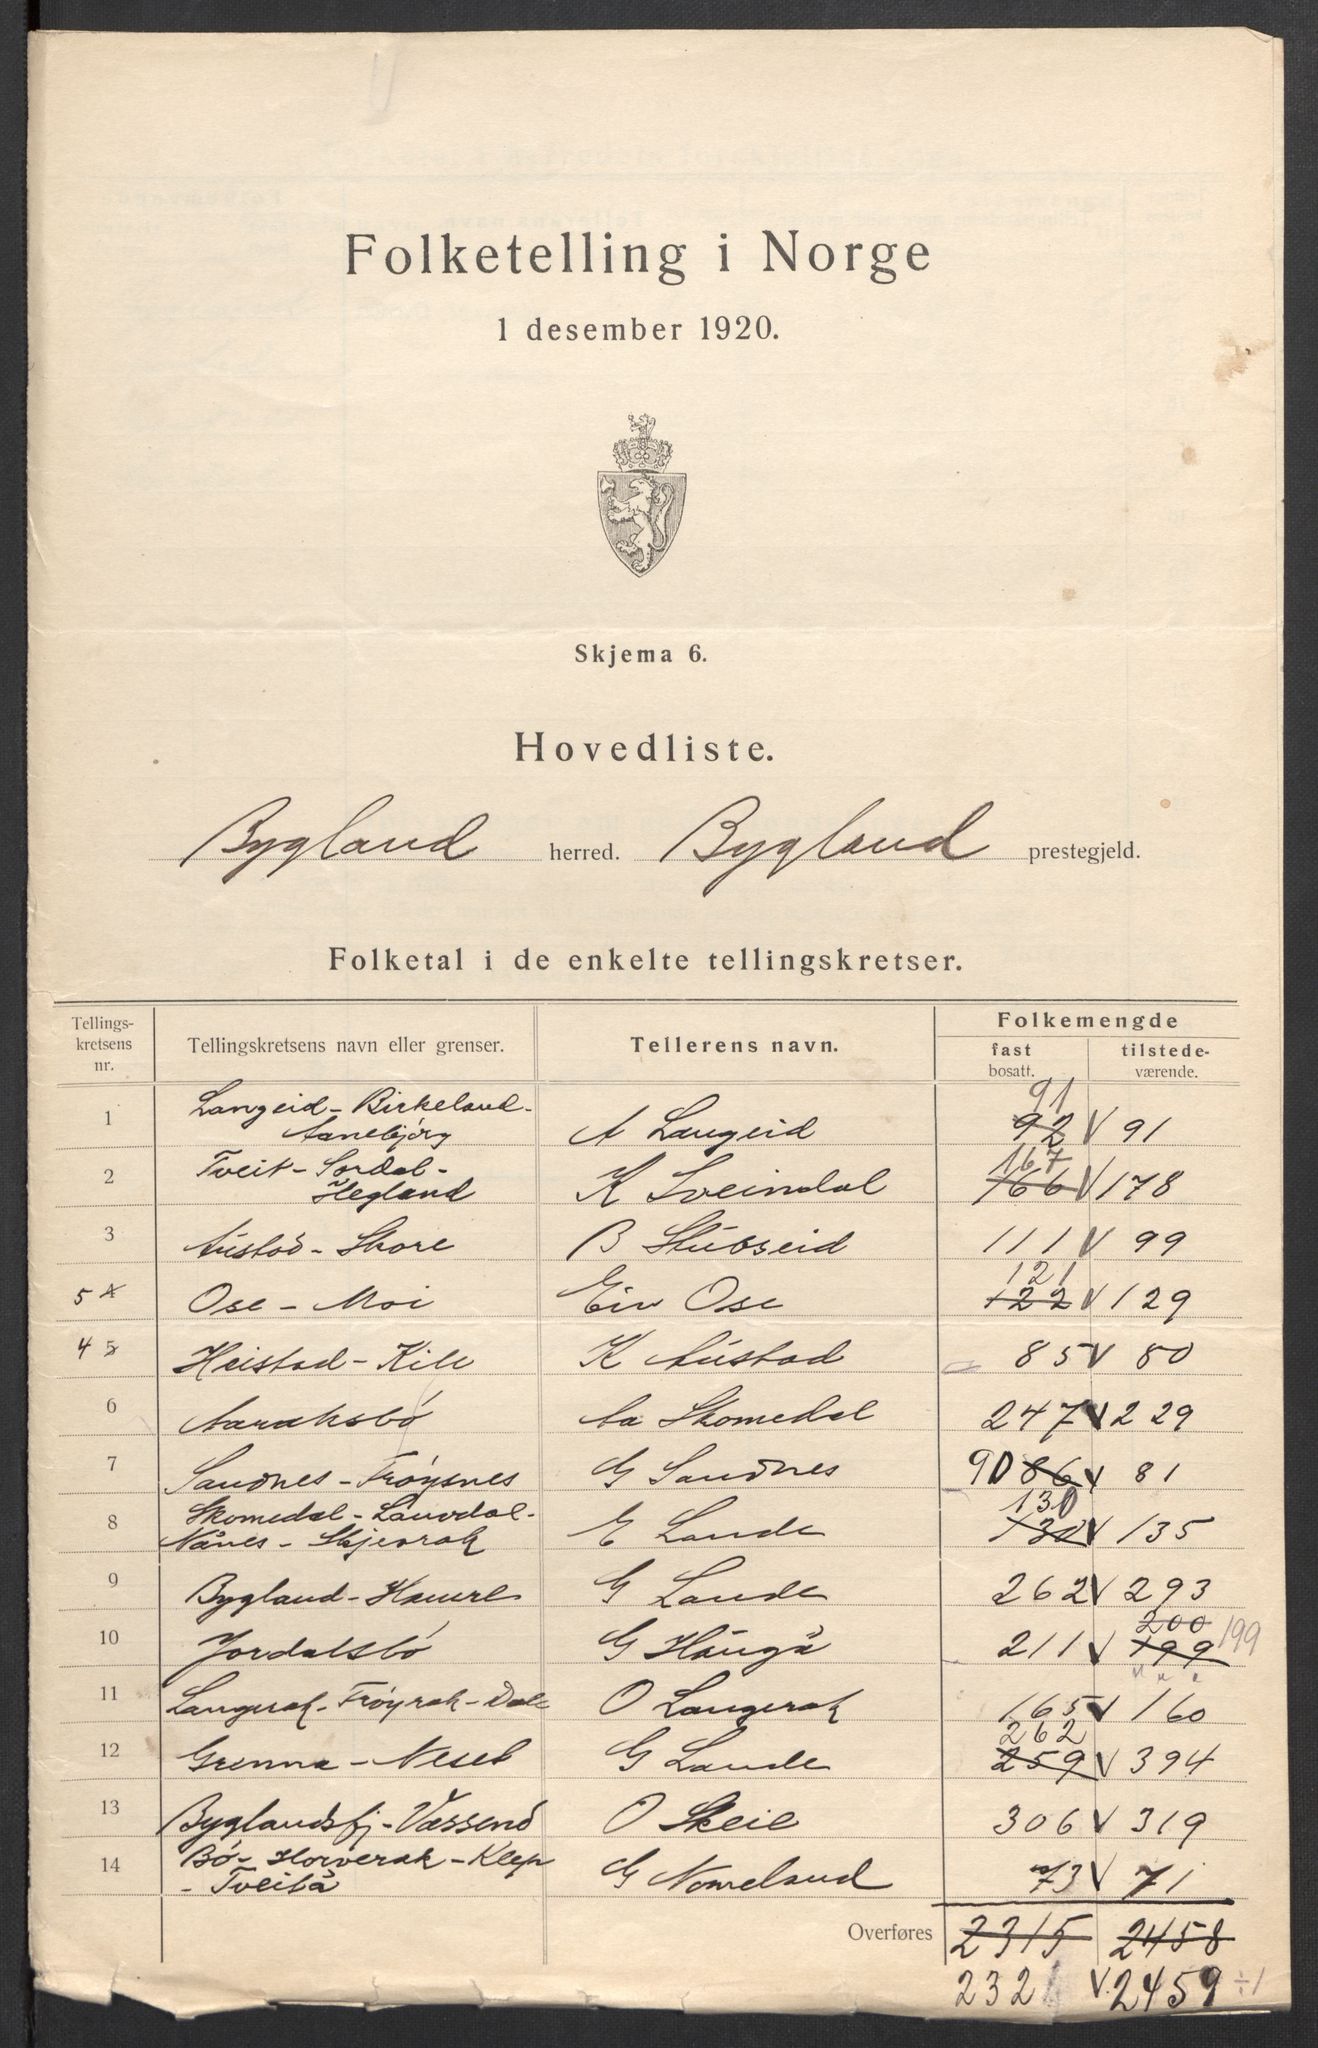 Folketelling i Norge
1 desember 1920.
Skjema 6.
Hovedliste.
Bygland herred. Bygland prestegjeld.
Folketal i de enkelte tellingskretser.
Tellings-
kretsens
nr.
Tellingskretsens navn eller grenser.
Tellerens navn.
Folkemengde
fast
bosatt.
tilstede-
værende.
91
Langeid - Birkeland -
1 Aanebjørg A Langeid 92 V 91
167
Tveit - Sordal -
2 Hegland K Sveindal 166 V 178
3 Austad - Skore B Stubseid 111 V 99
121
5 4 Ose - Moi Eiv Ose 122 V 129
4 5 Heistad - Kile K Austad 85 V 80
6 Aaraksbö Aa Skomedal 247 V 229
7 Sandnes - Fröysnes G Sandnes 90 86 V 81
130
Skomedal - Lauvdal -
8 Nånes - Skjevrak E Lande 130 V 135
9 Bygland - Hamre G Lande 262 V 293
200
10 Jordalsbö G Haugå 211 V 199 199
11 Langerak - Fröyrak - Dale O Langerak 165 V 160
262
12 Grenna - Neset G Lande 259 V 394
13 Byglandsfj - Væssend O Skeie 306 V 319
Bö - Horverak - Klep
14 - Tveitå G Nomeland 73 V 71
Overføres 2315 2458
232 V. 2459 ÷1